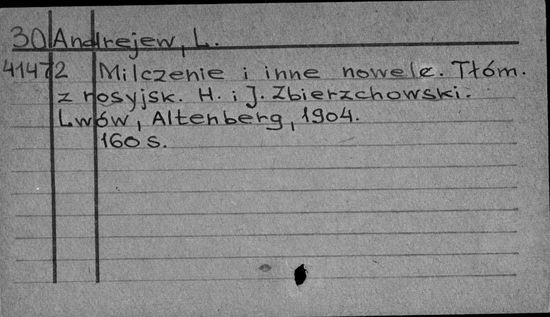 30 Andrejew, L.
41472 Milczenie i inne nowele. Tłóm.
z rosyjsk. H. i J. Zbierzchowski.
Lwów, Altenberg, 1904.
160 s.